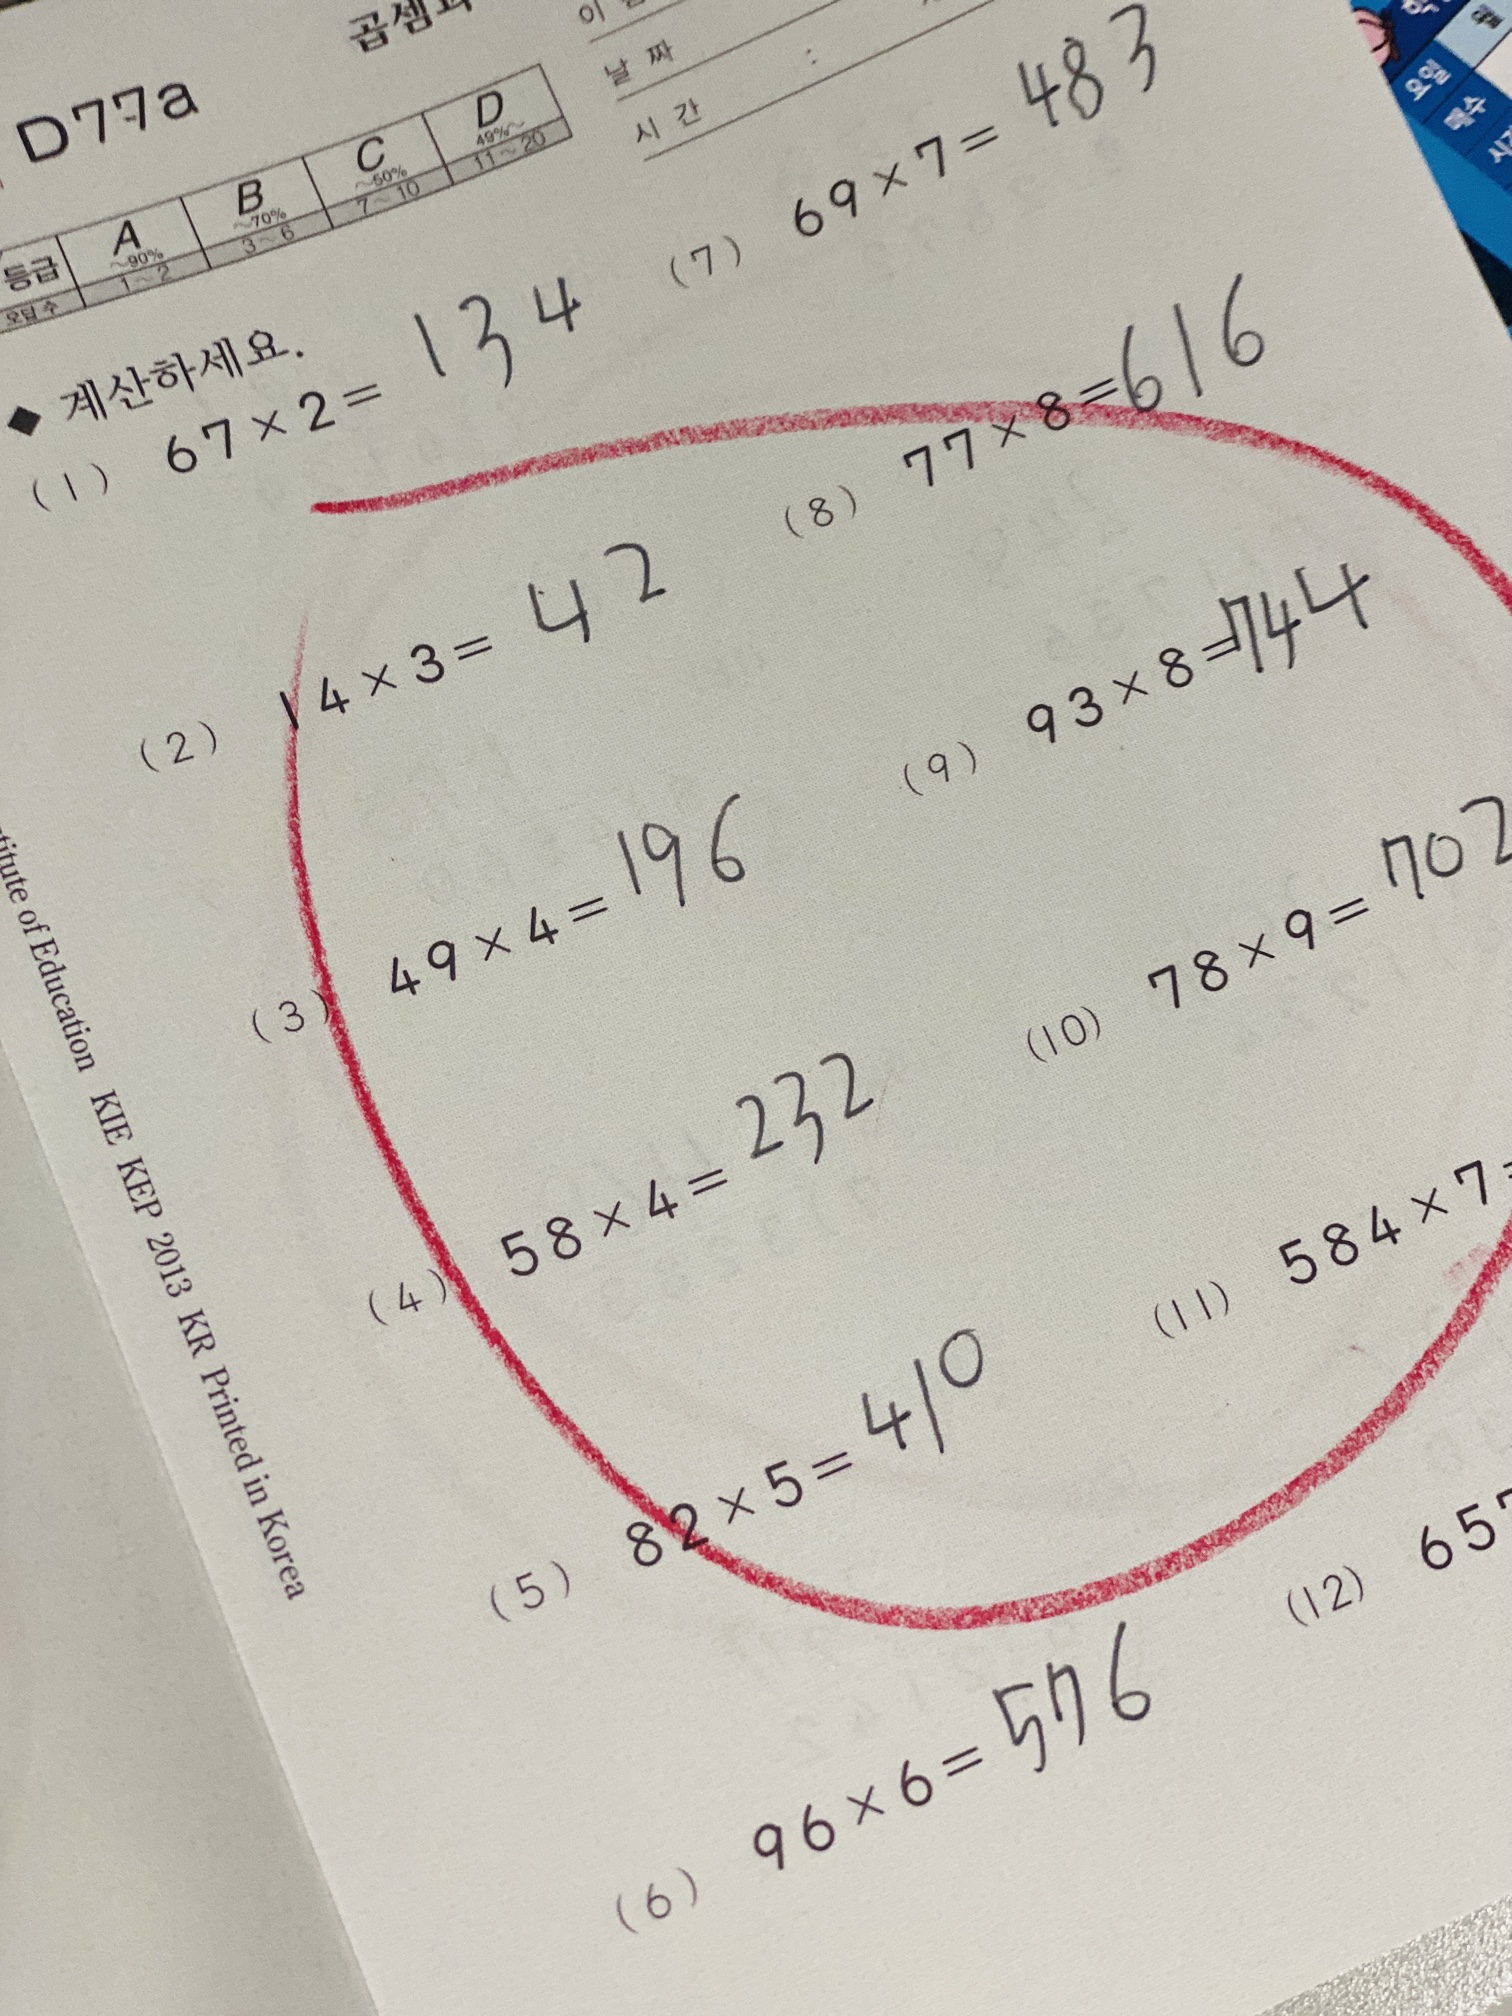 D77a
등급
A
~90%
1~2
B
~70%
3~6
C
~50%
7~10
D
49%~
11~20
오답수
날 짜
시 간 :
◆ 계산하세요.
(1) 67×2= 134
(2) 14×3= 42
(3) 49×4= 196
(4) 58×4= 232
(5) 82×5= 410
(6) 96×6= 576
(7) 69×7= 483
(8) 77×8= 616
(9) 93×8= 744
(10) 78×9= 702
(11) 584×7=
(12) 657
of Education KIE KEP 2013 KR Printed in Korea